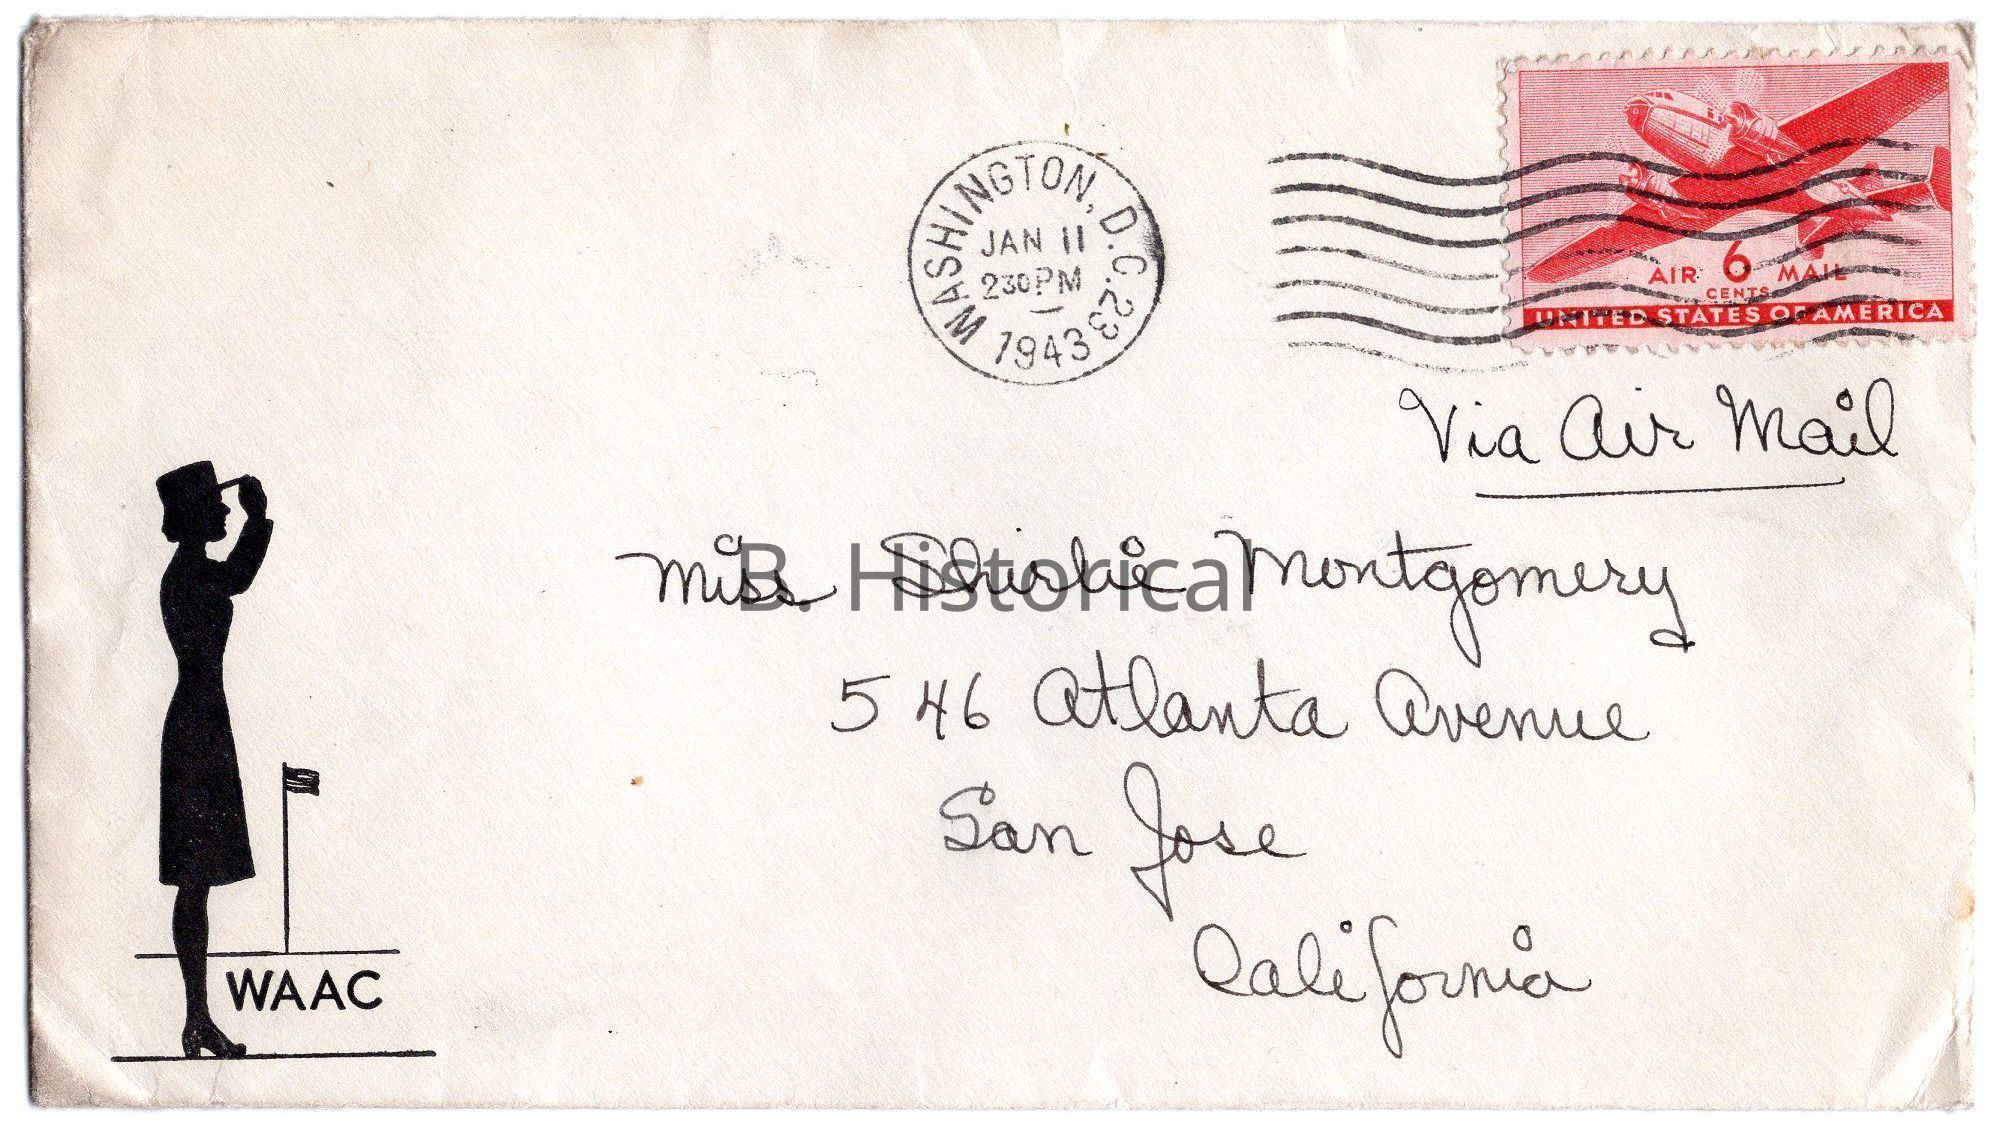 WASHINGTON, D.C. 23
JAN 11
230PM
1943
AIR 6 MAIL
CENTS
UNITED STATES OF AMERICA
Via Air Mail
Miss Shirlie Montgomery
B. Historical
546 Atlanta Avenue
San Jose
California
WAAC